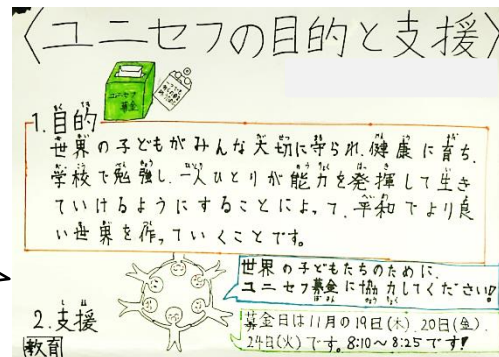 〈ユニセフの目的と支援〉
ユニセフ
募金
1.目的
世界の子どもがみんな大切に守られ、健康に育ち、
学校で勉強し、一人ひとりが能力を発揮して生き
ていけるようにすることによって、平和でより良
い世界を作っていくことです。
世界の子どもたちのために、
ユニセフ募金に協力してください!!
募金日は11月の19日(木)、20日(金)、
24日(火)です。8:10〜8:25です!
2.支援
教育